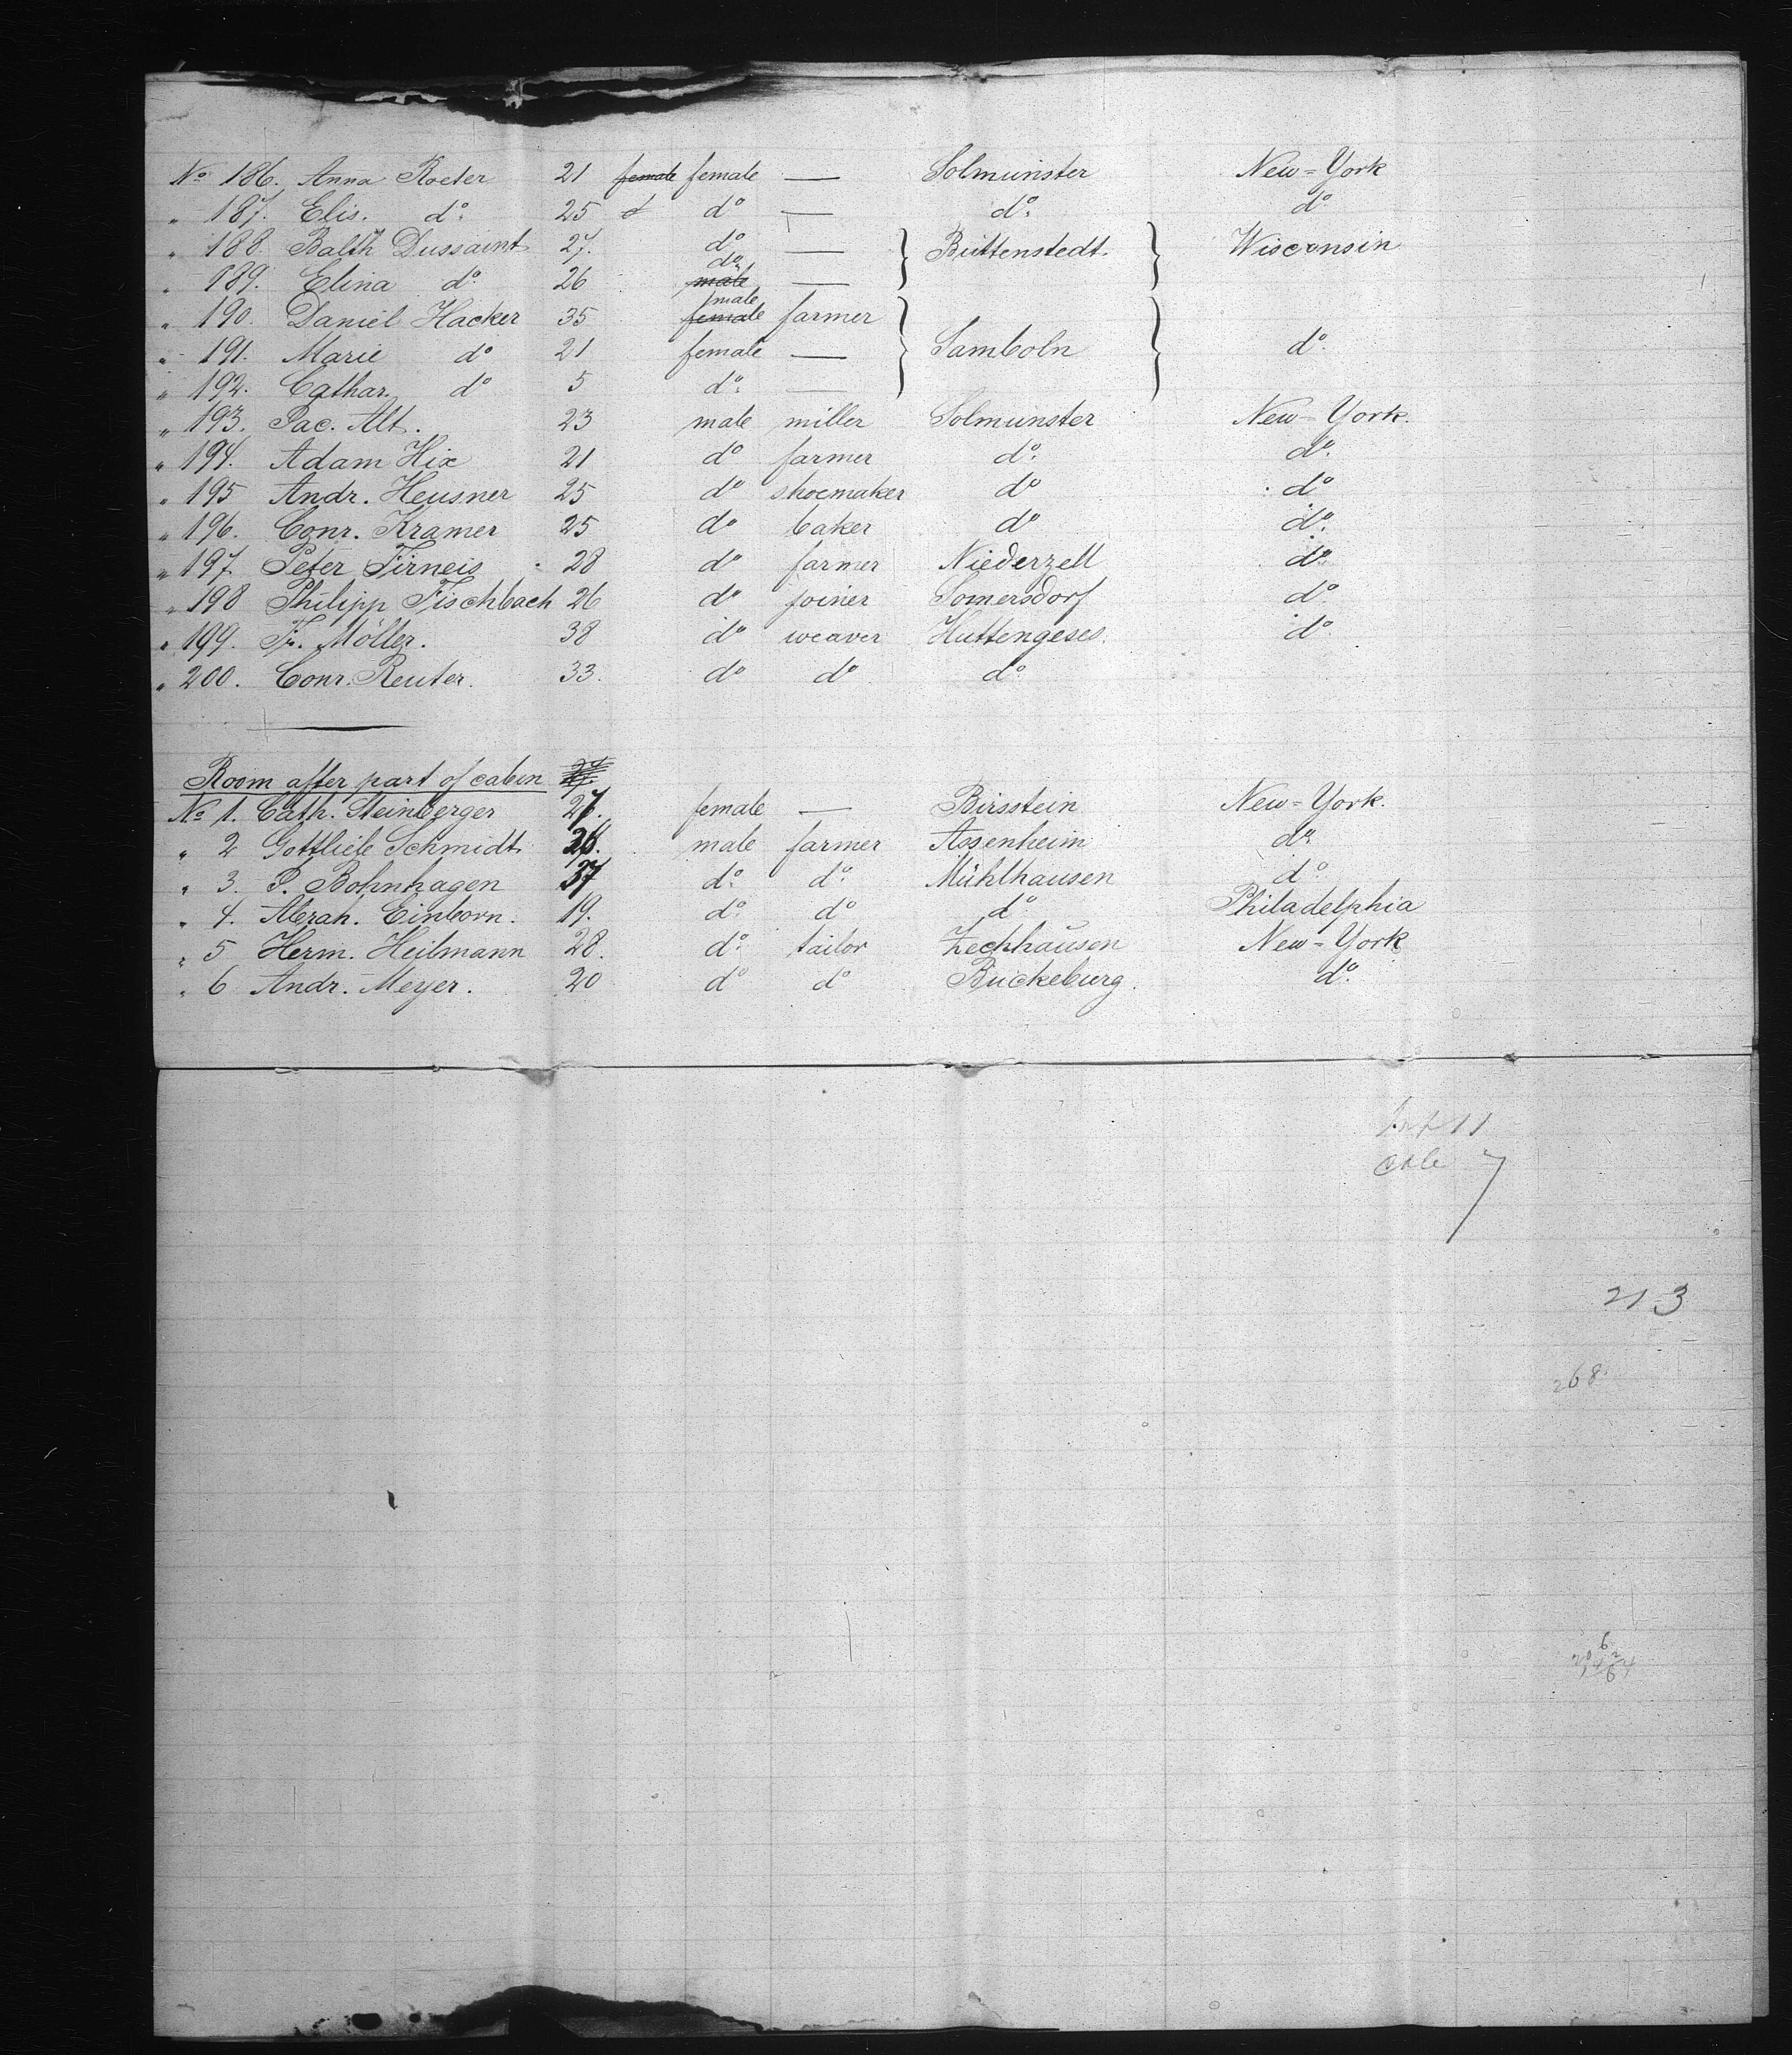 No 186. Anna Roeter 21 female female — Solmunster New=York
" 187. Elis. do. 25 do — do. do
" 188. Balth Dussaint 27. do — } Büttenstedt. } Wisconsin
" 189. Elina do. 26 male do. —
" 190. Daniel Hacker 35 female male farmer
" 191. Marie do 21 female — } Samboln } do.
" 192. Cathar. do 5 do. —
" 193. Jac. Alt. 23 male miller Solmunster New=York.
" 194. Adam Hix 21 do farmer do. do.
" 195 Andr. Heusner 25 do shoemaker do do
" 196. Conr. Kramer 25 do baker do do.
" 197. Peter Firneis 28 do farmer Niederzell do
" 198 Philipp Fischbach 26 do joiner Somersdorf do
" 199. Fr. Möller. 38 do weaver Huttengeses. do
" 200. Conr. Reuter. 33. do do do
Room after part of cabin
No 1. Cath. Steinberger 27. female — Birsstein New=York.
" 2 Gottlieb Schmidt 28. male farmer Assenheim do.
" 3. P. Bohnhagen 37 do. do. Mühlhausen do.
" 4. Abrah. Einborn. 19. do. do do Philadelphia
" 5 Herm. Heilmann 28. do. tailor Zechhausen New=York
" 6 Andr. Meyer. 20 do do Buckeburg. do.
11
7
213
268.